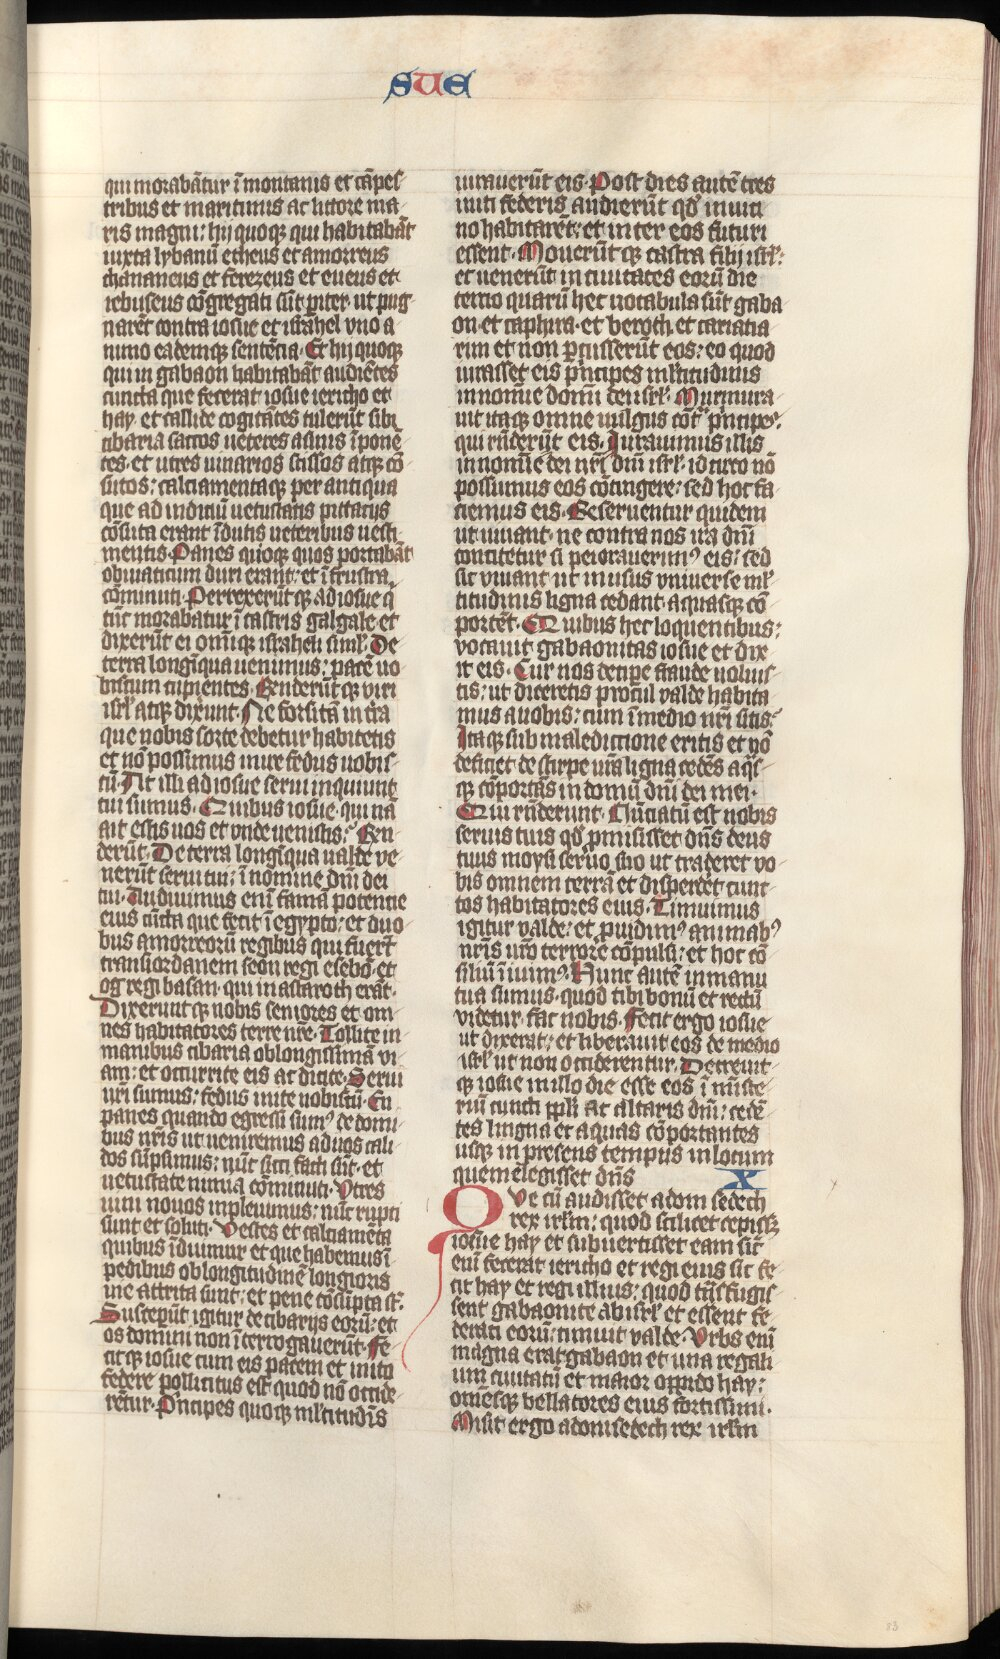 SUE
qui morabãtur ĩ montanis et cãpes
tribus et maritimis ac littore ma
ris magni: hij quoq; qui habitabãt
iuxta lybanũ etheus et amorreus
chananeus et ferezeus et eueus et
iebuseus cõgregati sũt piter· ut pug
narẽt contra iosue et israhel vno a
nimo eademq; sentẽcia· Et hij quoq;
qui in gabaon habitabãt audiẽtes
cuncta que fecerat iosue iericho et
hay· et callide cogitãtes tulerũt sibi
cibaria saccos ueteres asinis ĩponẽ
tes· et utres uinarios scissos atq; cõ
sutos: calciamentaq; per antiqua
que ad indiciũ uetustatis pittacijs
cõsuta erant ĩdutis ueteribus uesti
mentis· Panes quoq; quos portabãt
ob uiaticum duri erant: et ĩ frustra
cõminuti· Perrexerũt q; ad iosue q̃
tũc morabatur ĩ castris galgale et
dixerũt ei omĩq; israheli siml̕· De
terra longĩqua uenimus: pacẽ uo
biscum cupientes· Renderũt q; viri
isrl̕ atq; dixerunt· Ne forsitã in tr̃a
que nobis sorte debetur habitetis
et nõ possimus inire fedus uobis
cũ· At illi ad iosue serui inquiunt
tui sumus· Quibus iosue· qui nã
ait estis uos et vnde uenistis? Ren
derũt· De terra longĩqua ualde ve
nerũt serui tui: ĩ nomine dñi dei
tui· Audiuimus enĩ famã potencie
eius cũcta que fecit ĩ egypto: et duo
bus amorreorũ regibus qui fuerũt
trans iordanem seon regi esebõ· et
og regi basan· qui in astaroth erãt·
Dixerunt q; nobis seniores et om
nes habitatores terre nr̃e· Tollite in
manibus cibaria ob longissimã vi
am: et occurrite eis ac dicite· Serui
ur̃i sumus: fedus inite nobiscũ· En
panes quando egressi sumꝰ de domi
bus nr̃is ut ueniremus ad uos cali
dos sũpsimus: nũc sicci facti sũt· et
uetustate nimia cõminuti· Vtres
uini nouos inpleuimus: nũc rupti
sunt et soluti· Vestes et calciamẽta
quibus ĩduimur et que habemus ĩ
pedibus ob longitudinẽ longioris
uie attrita sunt: et pene cõsũpta st̃·
Susceperũt igitur de cibarijs eorũ: et
os domini non ĩterrogauerũt· Fe
cit q; iosue cum eis pacem et inito
federe pollicitus est quod nõ occide
rẽtur· Pͥncipes quoq; ml̕titudĩs
iurauerũt eis· Post dies autẽ tres
initi federis audierũt qd̕ in uici
no habitarẽt: et inter eos futuri
essent· Mouerũt q; castra filij isrl̕:
et uenerũt in ciuitates eorũ die
tercio quarũ hec uocabula sũt gaba
on· et caphira· et beroth et cariatia
rim et non ꝑcusserũt eos: eo quod
iurasset eis pͥncipes ml̕titudinis
in nomie domĩ dei isrl̕· Murmura
uit itaq; omne uulgus cõt̃ pͥncipes·
qui rñderũt eis· Iurauimus illis
in nomie dei nr̃i dñi isrl̕· idcirco nõ
possumus eos cõtingere: sed hoc fa
ciemus eis· Reseruentur quidem
ut uiuant· ne contra nos ira dñi
concitetur si peierauerimꝰ eis: sed
sic viuant ut in usus vniuerse ml̕
titudinis ligna cedant aquasq; cõ
portẽt· Quibus hec loquentibus:
vocauit gabaonitas iosue et dix
it eis· Cur nos decipe fraude uoluis
tis: ut diceretis procul valde habita
mus a uobis: cum ĩ medio nr̃i sitis?
Itaq; sub maledictione eritis et nõ
deficiet de stirpe ur̃a ligna cedẽs aq̃s
q; cõportãs in domũ dñi dei mei·
Qui rñderunt· Nũciatũ est nobis
seruis tuis qd̕ pmisisset dñs deus
tuus moysi seruo suo ut traderet vo
bis omnem terrã et disperdet cunc
tos habitatores eius· Timuimus
igitur valde: et puidimꝰ animabꝰ
nr̃is ur̃o terrore cõpulsi: et hoc cõ
siliũ ĩiuimꝰ· Nunc autẽ in manu
tua sumus· quod tibi bonũ et rectũ
videtur· fac nobis· Fecit ergo iosue
ut dixerat: et liberauit eos de medio
isrl̕ ut non occiderentur· Decreuit
q; iosue in illo die esse eos ĩ mĩste
riũ cuncti ppl̕i ac altaris dñi: cedẽ
tes lingna et aquas cõportantes
usq; in presens tempus in locum
quem elegisset dñs X
Qve cũ audisset adoni sedech
rex irlm̃: quod scilicet cepiss;
iosue hay et subuertisset eam sic̃
enĩ fecerat iericho et regi eius sic fe
cit hay et regi illius: quod trãs fugis
sent gabaonite ab isrl̕ et essent fe
derati eorũ: timuit valde· Vrbs enĩ
magna erat gabaon et una regali
um ciuitatũ et maior oppido hay:
omẽsq; bellatores eius fortissimi·
Misit ergo adonisedech rex irlm̃
83